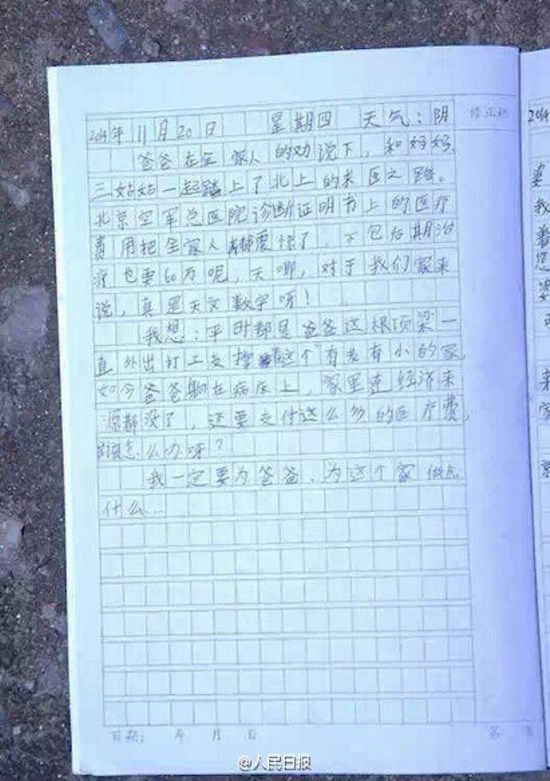 2014年 11月 20日 星期四 天气:阴
修正栏
爸爸在全家人的劝说下,和妈妈、
三姑姑一起踏上了北上的求医之路。
北京空军总医院诊断证明书上的医疗
费用把全家人都震惊了,不包后期治
疗也要60万呢,天哪,对于我们家来
说,真是天文数字呀!
我想:平时都是爸爸这根顶梁一
直外出打工支撑着这个有老有小的家,
如今爸爸躺在病床上,家里连经济来
源都没了,还要支付这么多的医疗费,
该怎么办呀?
我一定要为爸爸、为这个家做点
什么…
日期: 年 月 日
第 页
@人民日报
2014
我